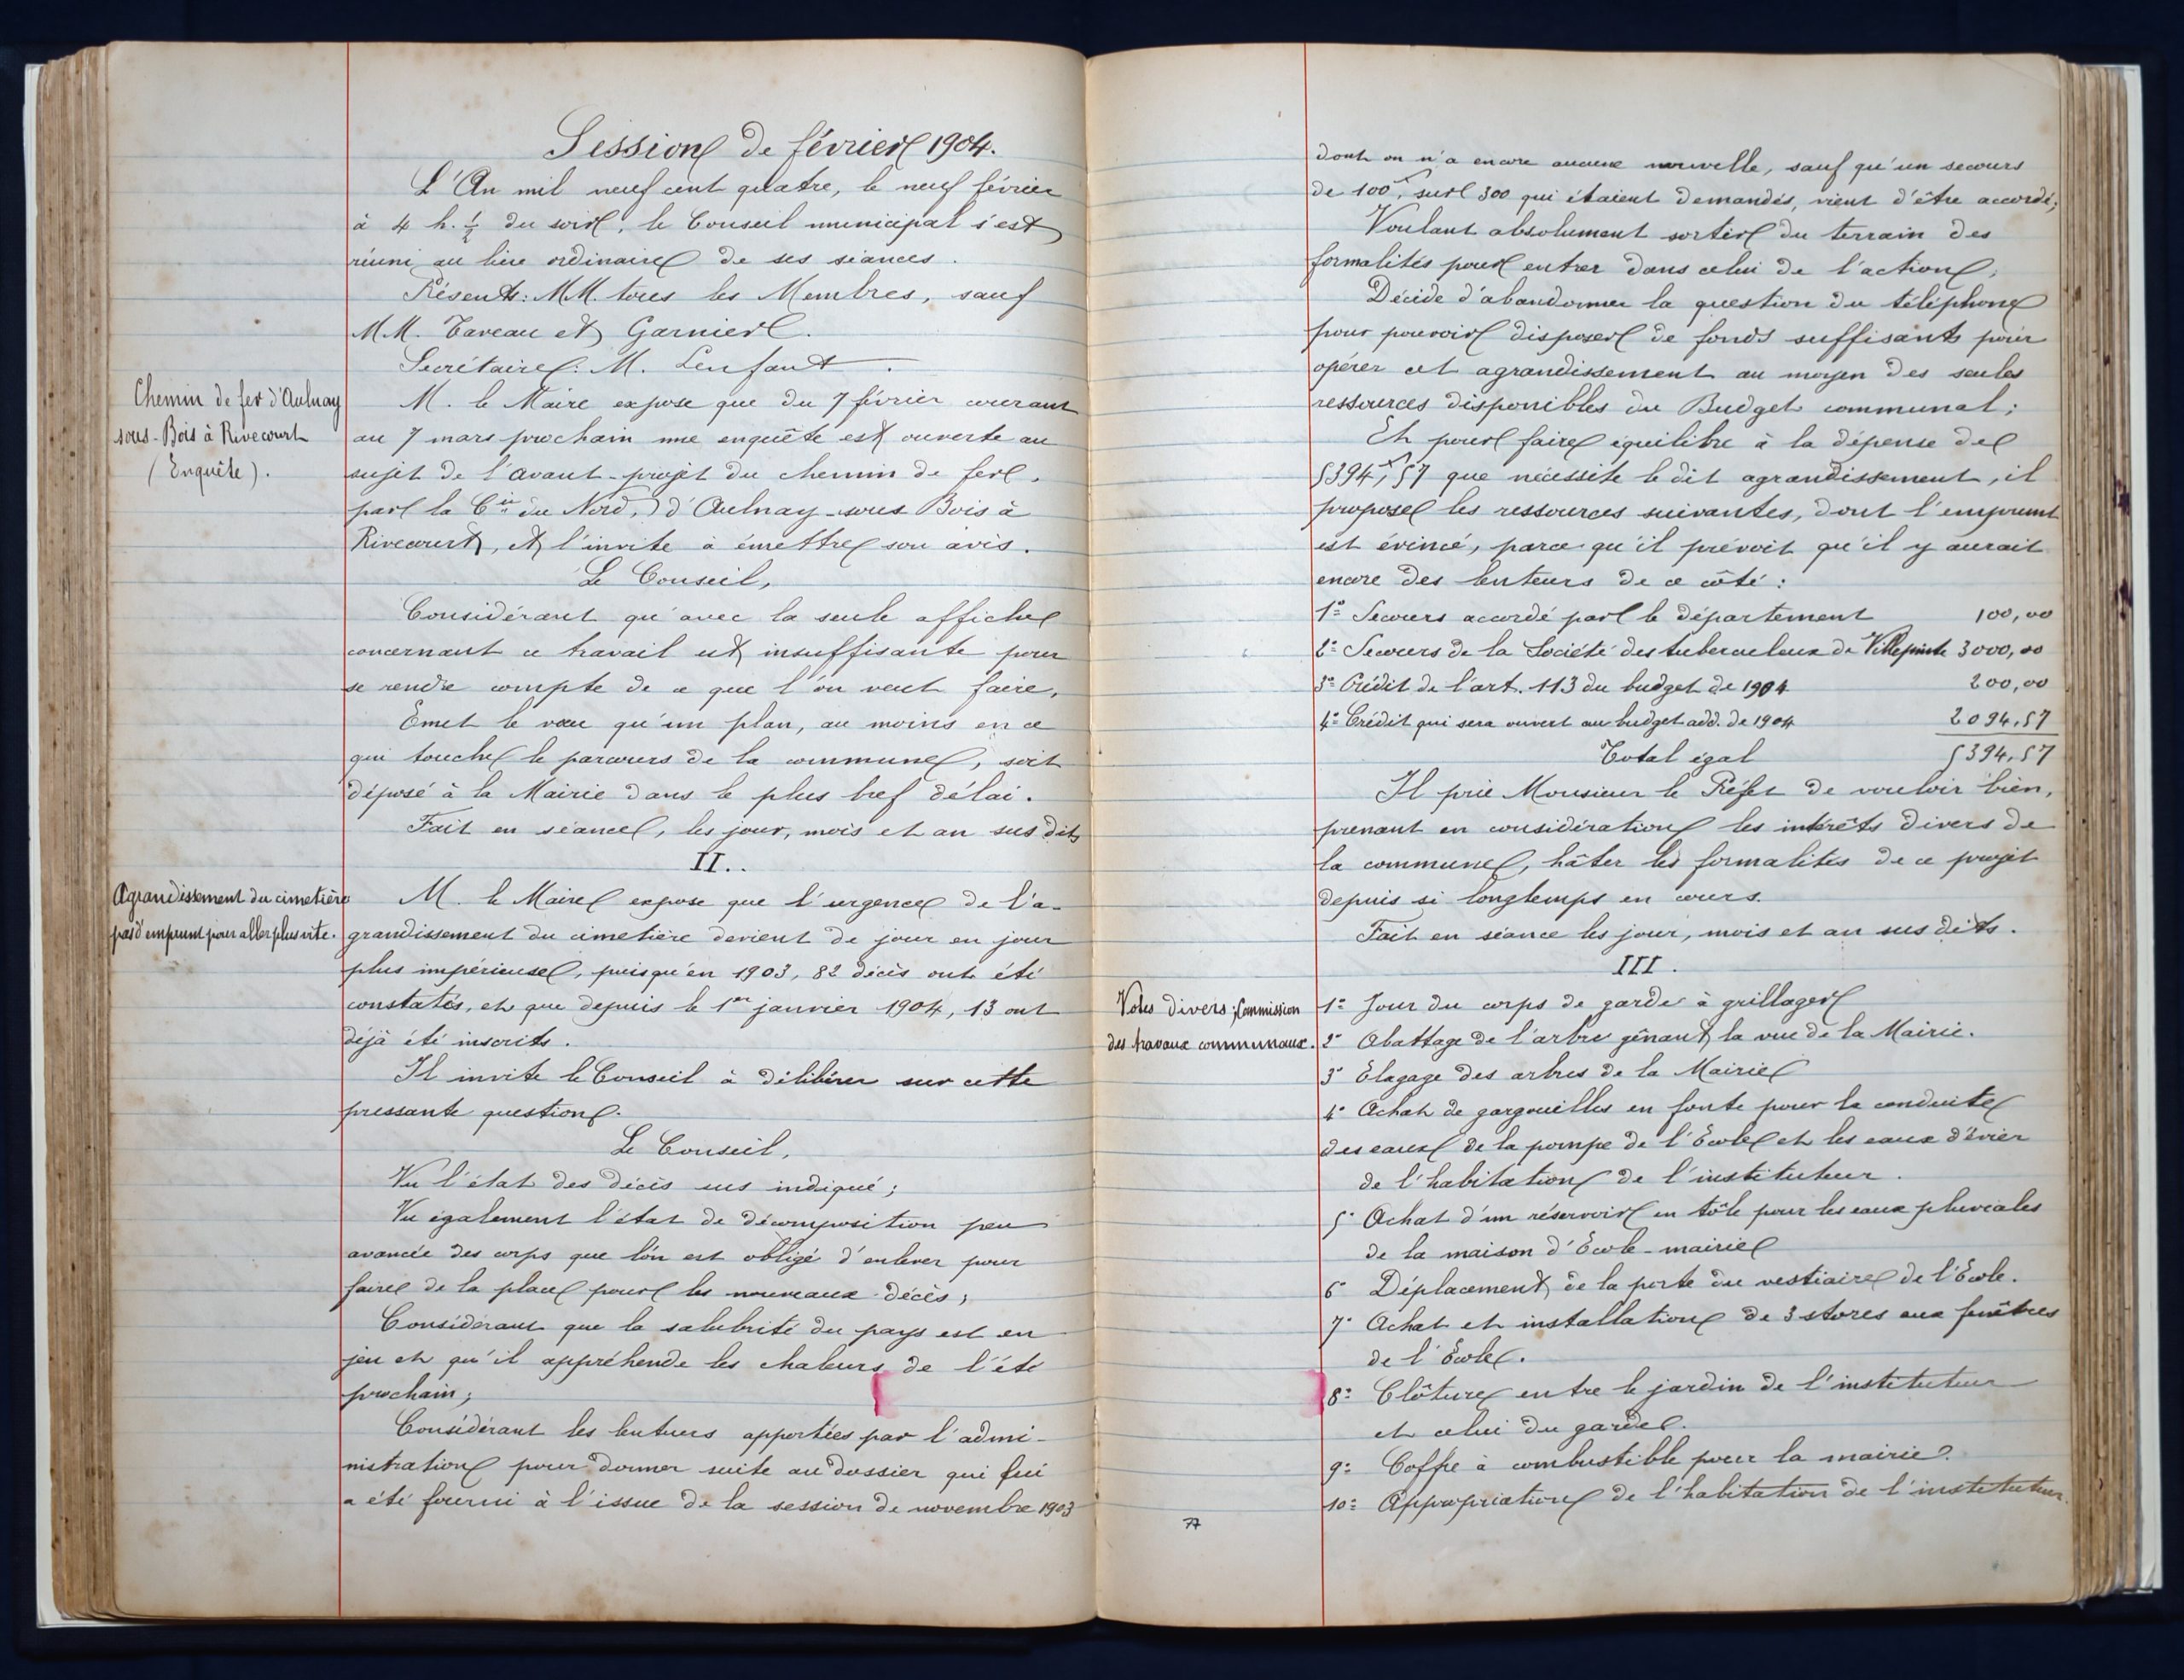 Session de février 1904.
L'An mil neuf cent quatre, le neuf février
à 4 h. ½ du soir, le Conseil municipal s'est
réuni au lieu ordinaire de ses séances.
Présents: MM. tous les Membres, sauf
MM. Taveau et Garnier.
Secrétaire: M. Lenfant.
Chemin de fer d'Aulnay
sous-Bois à Rivecourt
(Enquête).
M. le Maire expose que du 7 février courant
au 7 mars prochain une enquête est ouverte au
sujet de l'avant-projet du chemin de fer,
par la Cie du Nord, d'Aulnay-sous Bois à
Rivecourt, et l'invite à émettre son avis.
Le Conseil,
Considérant qu'avec la seule affiche
concernant ce travail est insuffisante pour
se rendre compte de ce que l'on veut faire,
Emet le vœu qu'un plan, au moins en ce
qui touche le parcours de la commune, soit
déposé à la Mairie dans le plus bref délai.
Fait en séance, les jour, mois et an sus dits
II..
Agrandissement du cimetière
pas d'emprunt pour aller plus vite.
M. le Maire expose que l'urgence de l'a-
grandissement du cimetière devient de jour en jour
plus impérieuse, puisqu'en 1903, 82 décès ont été
constatés, et que depuis le 1er janvier 1904, 13 ont
déjà été inscrits.
Il invite le Conseil à délibérer sur cette
pressante question.
Le Conseil,
Vu l'état des décès sus indiqué;
Vu également l'état de décomposition peu
avancée des corps que l'on est obligé d'enlever pour
faire de la place pour les nouveaux décès;
Considérant que la salubrité du pays est en
jeu et qu'il appréhende les chaleurs de l'été
prochain;
Considérant les lenteurs apportées par l'admi-
nistration pour donner suite au dossier qui lui
a été fourni à l'issue de la session de novembre 1903
dont on n'a encore aucune nouvelle, sauf qu'un secours
de 100f, sur 300 qui étaient demandés, vient d'être accordé;
Voulant absolument sortir du terrain des
formalités pour entrer dans celui de l'action;
Décide d'abandonner la question du téléphone
pour pouvoir disposer de fonds suffisants pour
opérer cet agrandissement au moyen des seules
ressources disponibles du Budget communal;
Et pour faire équilibre à la dépense de
5394f,57 que nécessite le dit agrandissement, il
propose les ressources suivantes, dont l'emprunt
est évincé, parce qu'il prévoit qu'il y aurait
encore des lenteurs de ce côté:
1° Secours accordé par le département 100,00
2° Secours de la Société des tuberculeux de Villepinte 3000,00
3° Crédit de l'art. 113 du budget de 1904 200,00
4° Crédit qui sera ouvert au budget add. de 1904 2094,57
Total égal 5394,57
Il prie Monsieur le Préfet de vouloir bien,
prenant en considération les intérêts divers de
la commune, hâter les formalités de ce projet
depuis si longtemps en cours.
Fait en séance les jour, mois et an sus dits.
III.
Votes divers; Commission
des travaux communaux.
1° Jour du corps de garde à grillager
2° Abattage de l'arbre gênant la vue de la Mairie.
3° Elagage des arbres de la Mairie
4° Achat de gargouilles en fonte pour la conduite
des eaux de la pompe de l'École et les eaux d'évier
de l'habitation de l'instituteur.
5° Achat d'un réservoir en tôle pour les eaux pluviales
de la maison d'École-mairie
6° Déplacement de la porte du vestiaire de l'École.
7° Achat et installation de 3 stores aux fenêtres
de l'École.
8° Clôture entre le jardin de l'instituteur
et celui du garde.
9° Coffre à combustible pour la mairie.
10° Appropriation de l'habitation de l'instituteur.